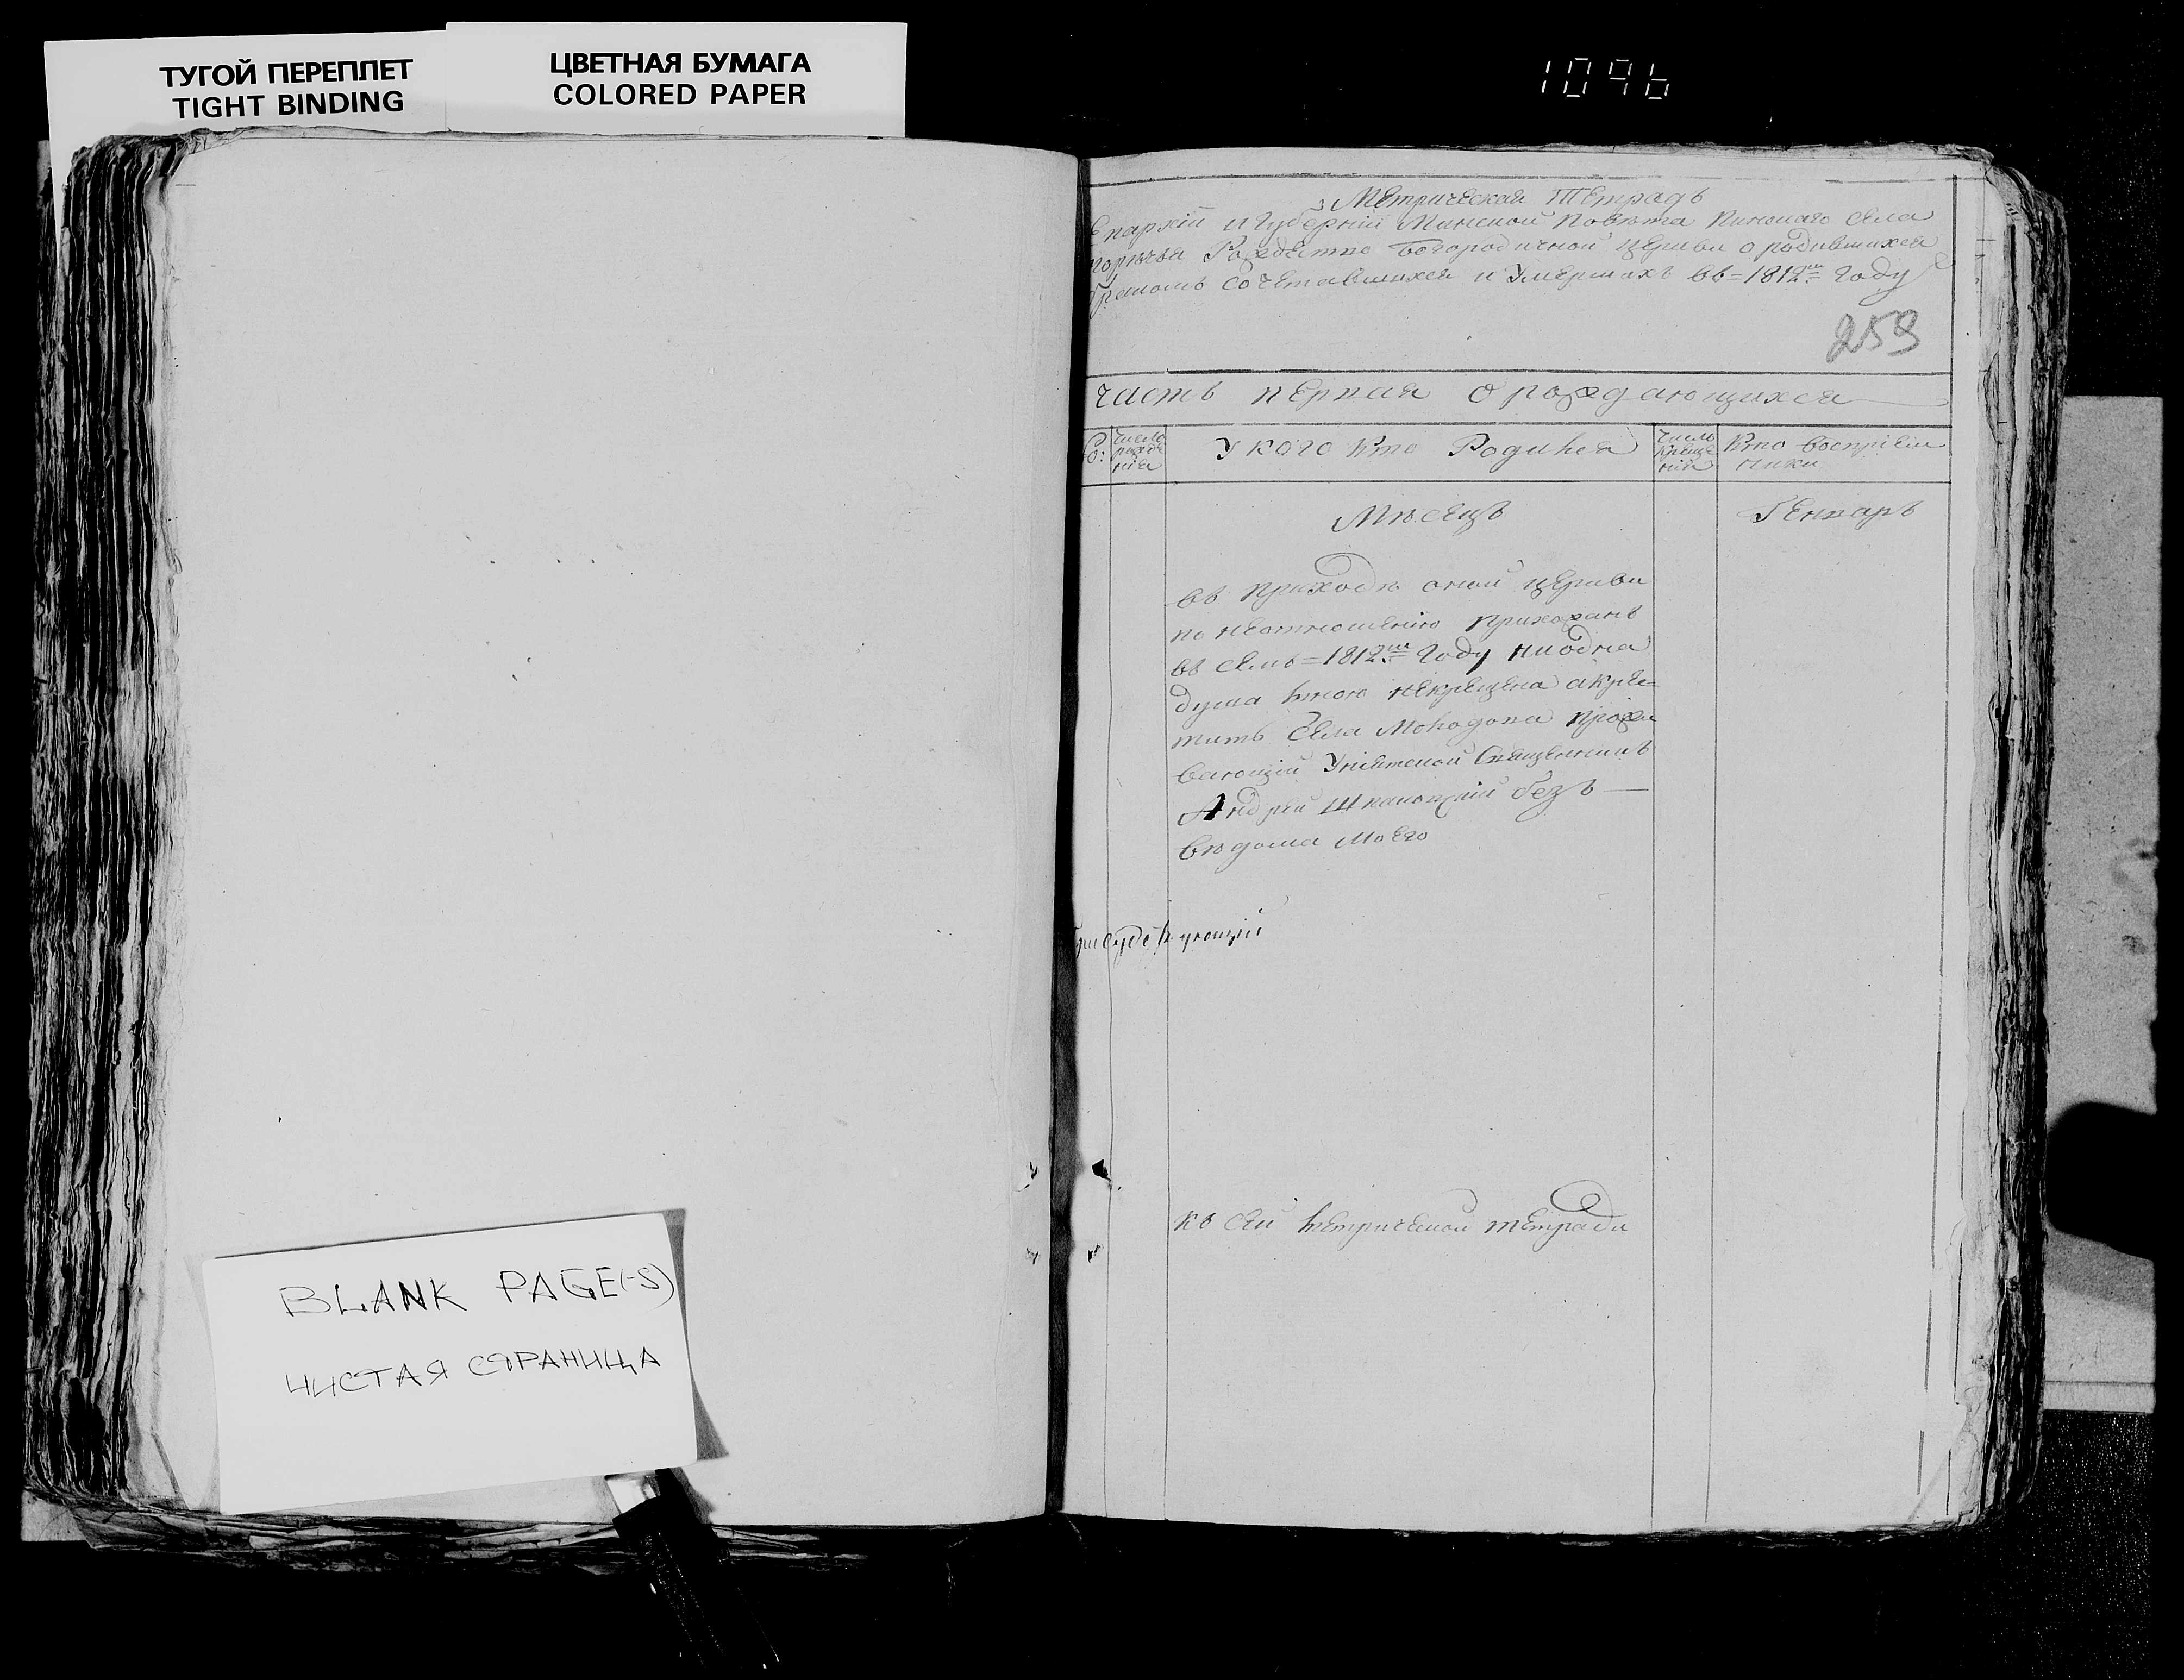 ТУГОЙ ПЕРЕПЛЕТ
TIGHT BINDING
ЦВЕТНАЯ БУМАГА
COLORED PAPER
1096
Метрическая Тетрадь
Епархіи и Губерніи Минской Повѣта Пинскаго Села
порѣчья Рождестно Богородичной церкви о родившихся
бракомъ Сочетавшихся и Умершихъ въ=1812мъ Году
259
часть первая о рождающихся
Число рожденія
У кого кто Родился
Число крещенія
Кто воспріемники
Мѣсецъ
Генваръ
въ приходѣ оной церкви
по неотношенію прихожанъ
въ семъ=1812мъ Году ниодна
душа мною некрещена акре=
титъ Села Молодова прожи
вающій Уніятской Священникъ
Андрей безъ
вѣдома моего
къ сей метрической тетради
BLANK PAGE(-S)
ЧИСТАЯ СТРАНИЦА